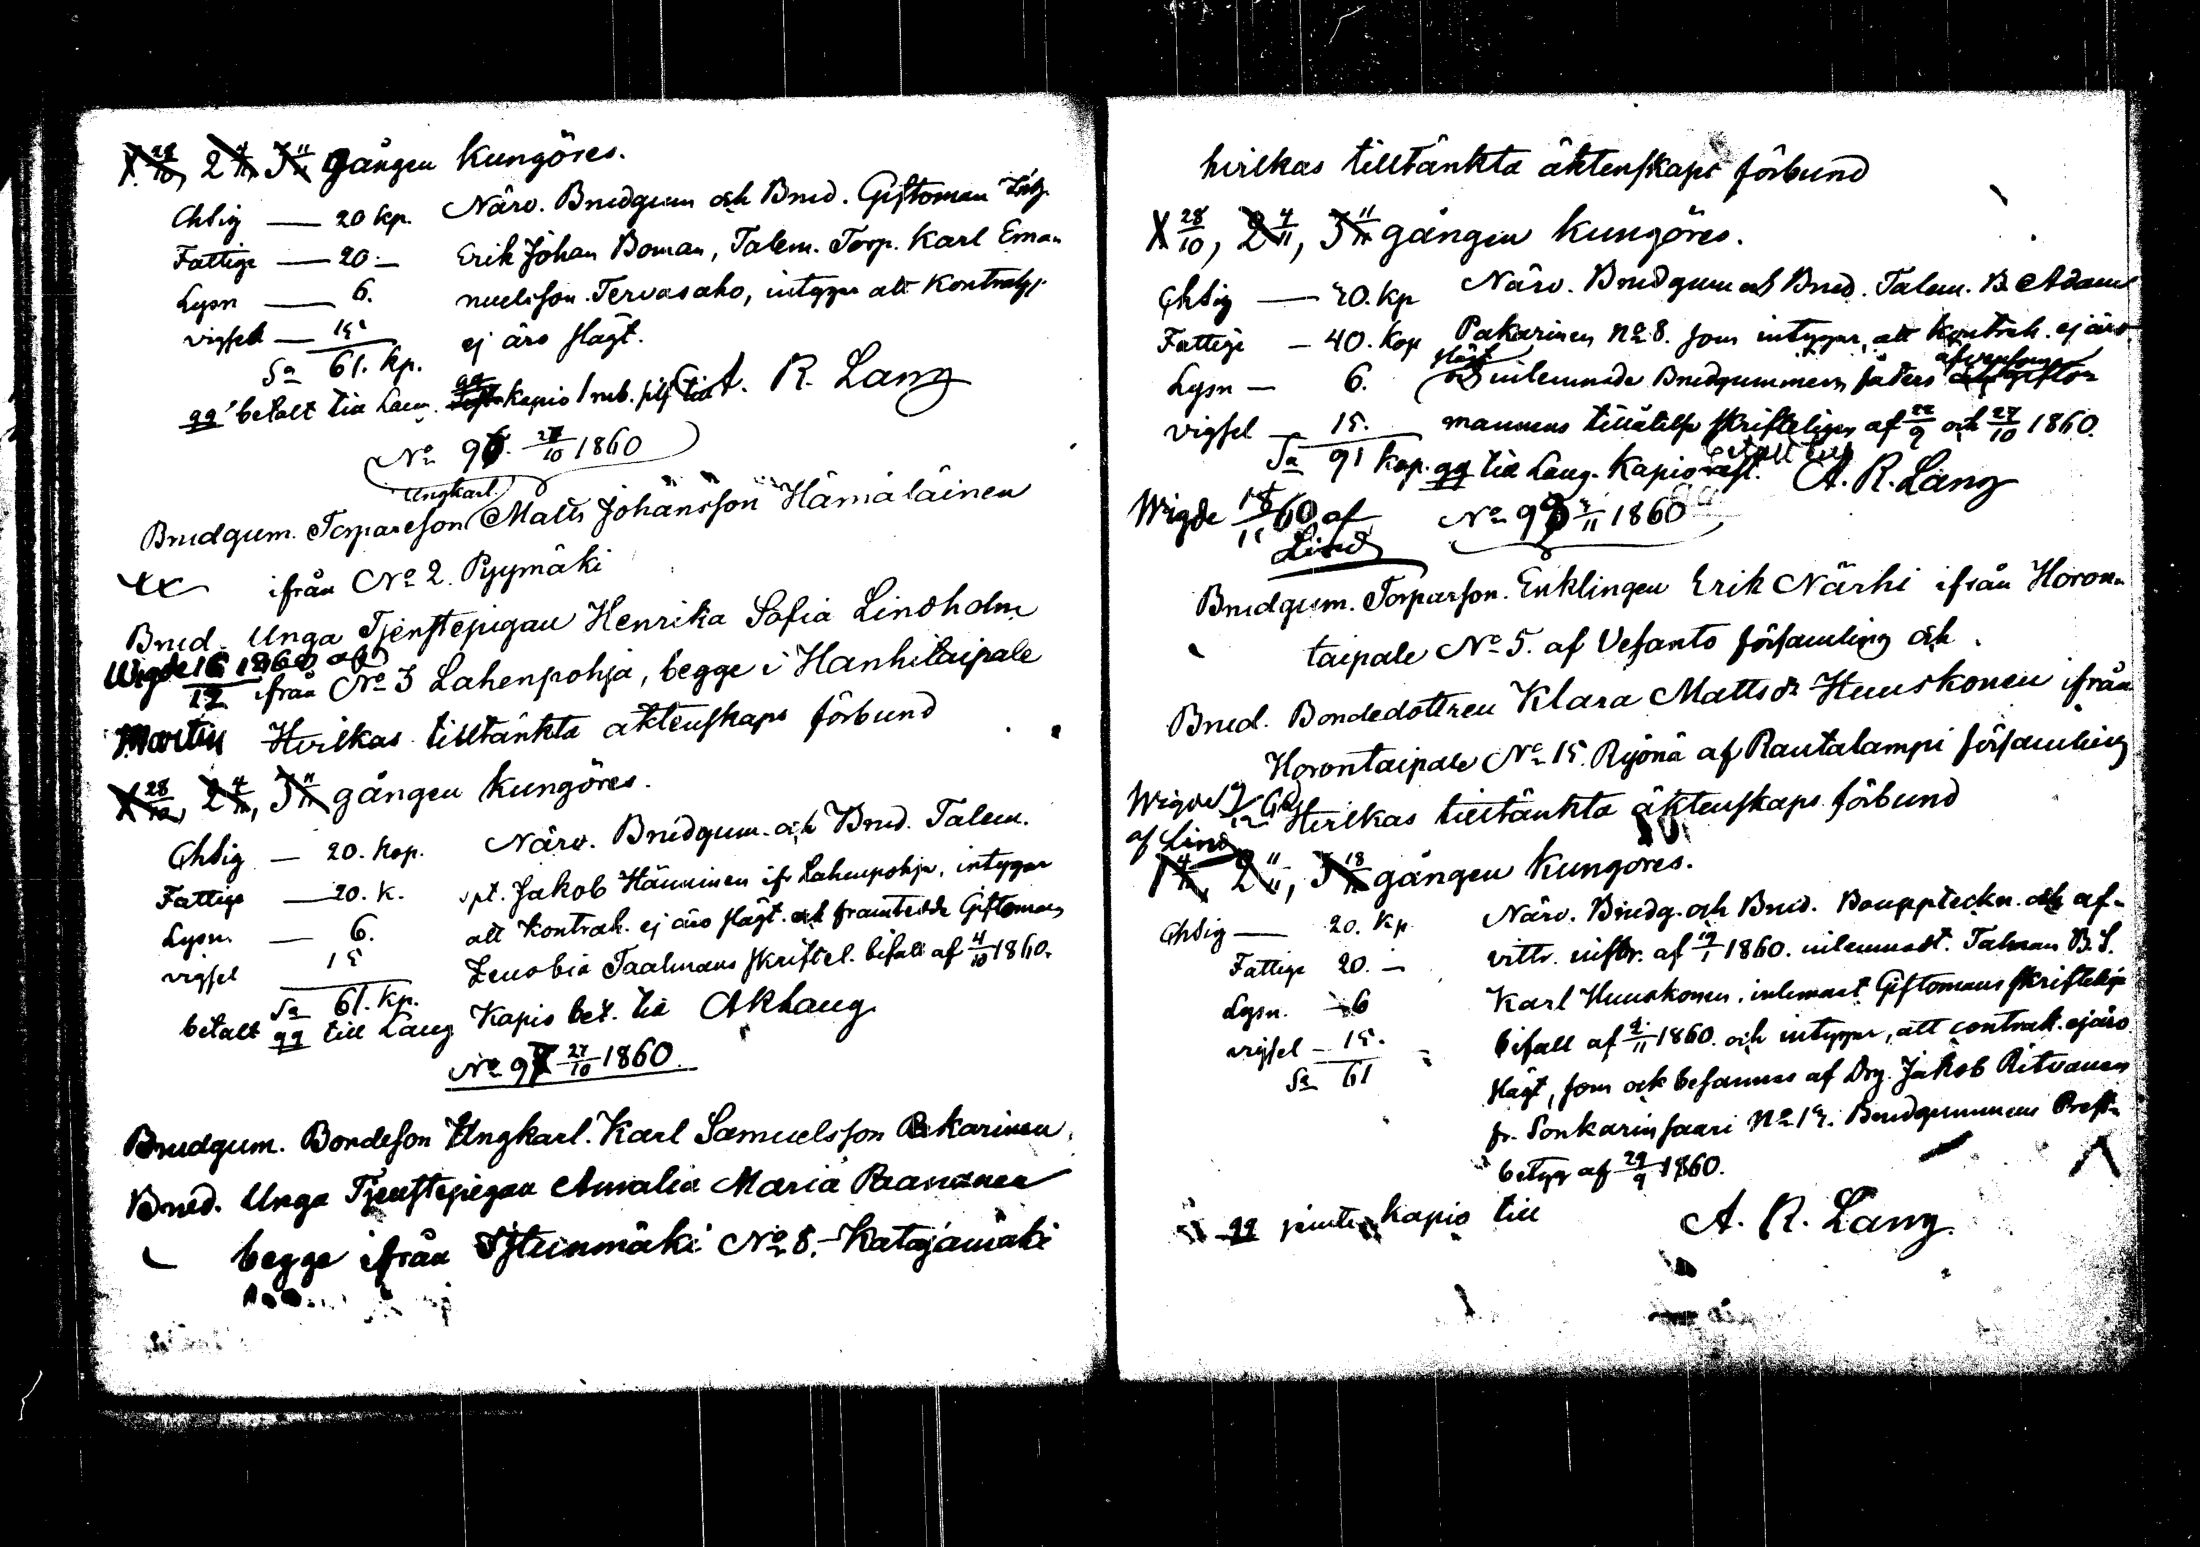 1 28/10, 2 4/11, 3 11/11 gången kungöres.
Chsig — 20 kp. Närv. Brudgum och Brud. Giftoman
Fattige — 20 — Erik Johan Boman, Talem. Torp. Karl Ema-
Lysn — 6. nuelsson Tervasaho, intygar att Kontrah.
vigsel — 15 ej äro slägt.
Sa 61. kp.
qq betalt till Laeng. Kapio 1 rub. A. R. Lang
No 96. 27/10 1860
Ungkarl
Brudgum. Torpareson Matts Johansson Hämäläinen
ifrån No 2. Pyymäki
Brud. Unga Tjenstepigan Henrika Sofia Lindholm
Wigde 16/12 1860 af
ifrån No 3 Lahenpohja, begge i Hanhitaipale
Martin Hvilkas tilltänkta äktenskaps förbund
1 28/10, 2 4/11, 3 11/11 gången kungöres.
Chsig — 20. kop. Närv. Brudgum. och Brud. Talem.
Fattige — 20. k. Jakob Hänninen ifr Lahenpohja, intygar
Lysn. — 6. att Kontrah. ej äro slägt. och framtedde Giftomans
vigsel 15 Zenobia Taalmans skriftel. bifall af 4/10 1860.
Sa 61. kp.
betalt qq till Laeng Kapio bet. till A R Laeng
No 97 27/10 1860.
Brudgum. Bondeson Ungkarl. Karl Samuelsson Pakarinen
Brud. Unga Tjenstepigan Amalia Maria Paananen
begge ifrån Istunmäki No 8. Katajamäki
hvilkas tilltänkta äktenskaps förbund
1 28/10, 2 4/11, 3 11/11 gången kungöres.
Chsig — 20. kp Närv. Brudgum och Brud. Talem. B. Adam
Fattige — 40. kop Pakarinen No 8. som intygar, att kontrah. ej äro
slägt
Lysn — 6. och inlemnade Brudgummens faders
vigsel — 15. mannens tillåtelse skrifteligen af 22/9 och 27/10 1860.
Sa 91 kop. qq till Laeng. Kapio betalt till
A. R. Lang
Wigde 18/11 60 af
Lind
No 98 3/11 1860
Brudgum. Torparson. Enklingen Erik Närhi ifrån Horon-
taipale No 5. af Vesanto församling och
Brud. Bondedottren Klara Mattsdr Huuskonen ifrån
Horontaipale No 15. Ryönä af Rautalampi församling
Wigde
af Lind
Hvilkas tilltänkta äktenskaps förbund
1 4/11, 2 11/11, 3 18/11 gången kungöres.
Chsig — 20. kp Närv. Brudg. och Brud. Bouppteckn. och af-
Fattige 20. — vittr. instr. af 19/1 1860. inlemnadt. Talman B. S.
Lysn. — 6 Karl Huuskonen, inlemnat Giftomans skriftelige
vigsel — 15. bifall af 2/11 1860. och intygar, att contrah. ej äro
Sa 61 slägt, som ock besannas af Drg. Jakob Ritvanen
fr. Sonkarinsaari No 15. Brudgummens Prest-
betyg af 29/9 1860.
qq jemte Kapio till A. R. Lang.